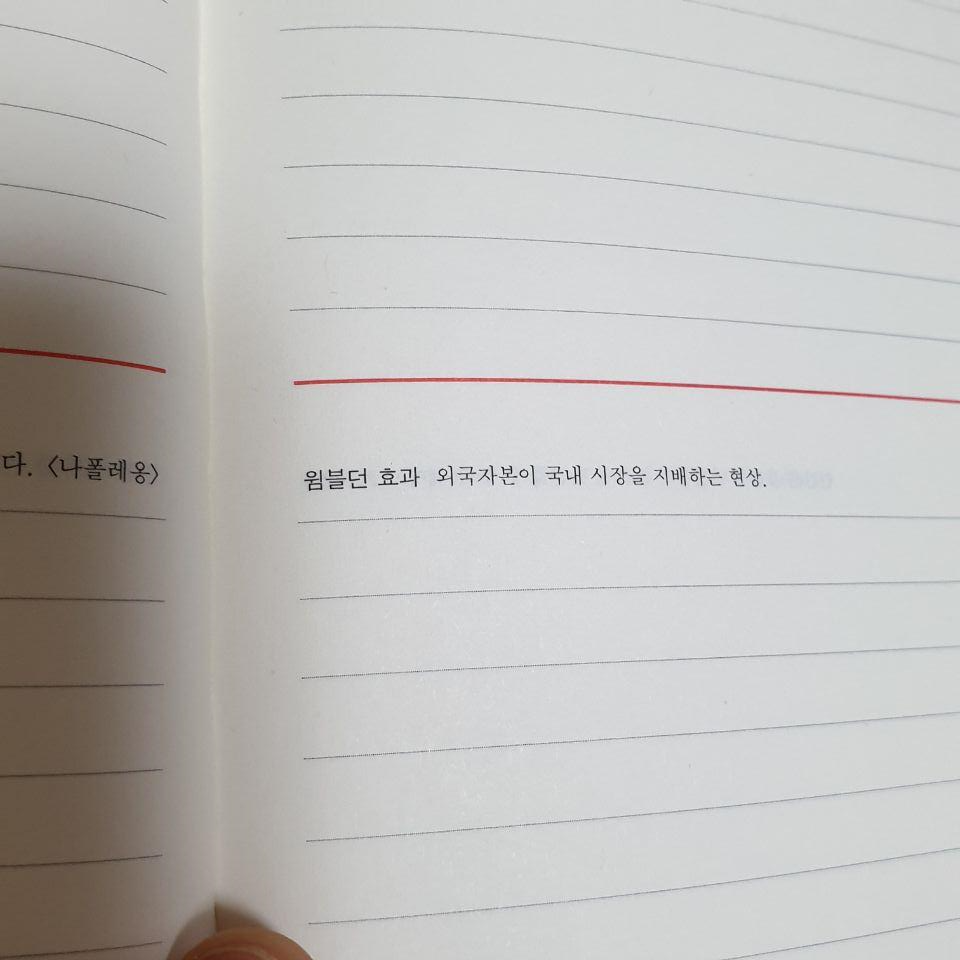 다. <나폴레옹>
윔블던 효과 외국자본이 국내 시장을 지배하는 현상.